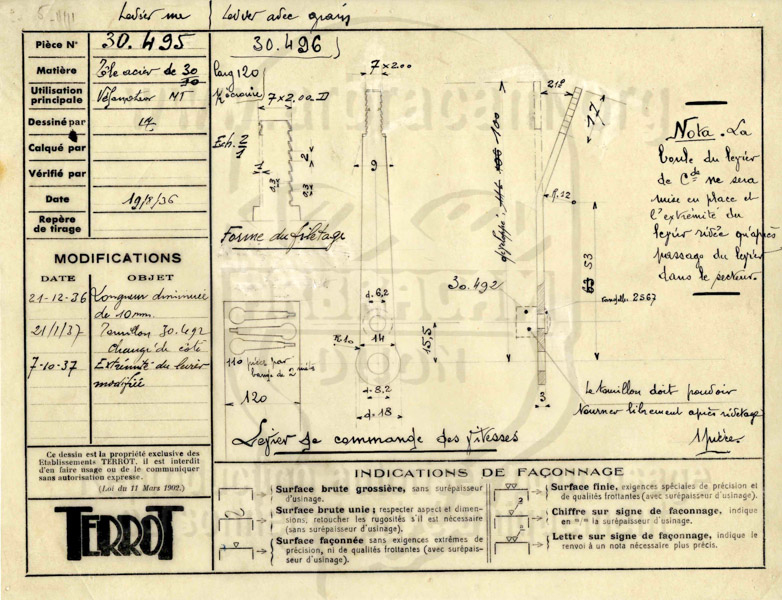 Levier nu
Levier avec grain
Pièce N° 30.495
30.496
Matière Tôle acier de 30/10
Utilisation principale Vélomoteur MT
Dessiné par
Calqué par
Vérifié par
Date 19/8/36
Repère de tirage
MODIFICATIONS
DATE OBJET
21-12-36 Longueur diminuée
de 10mm.
21/1/37 Tourillon 30.492
changé de côté
7-10-37 Extrémité du levier
modifiée
Ce dessin est la propriété exclusive des
Etablissements TERROT, il est interdit
d'en faire usage ou de le communiquer
sans autorisation expresse.
(Loi du 11 Mars 1902.)
TERROT
larg 120
7x2,00 D
Ech. 2/1
1
2
0,3
0,3
Forme du filetage
110 pièces par
bande de 2 mètres
120
7 x 200
9
d. 6,2
R10
14
15,5
d. 8,2
d. 18
développé: 100
218
12
R. 12
53
30.492
rondelle 2567
3
Nota. La
boule du levier
de Cde ne sera
mise en place et
l'extrémité du
levier rivée qu'après
passage du levier
dans le secteur.
Le tourillon doit pouvoir
tourner librement après rivetage
Levier de commande des vitesses
INDICATIONS DE FAÇONNAGE
Surface brute grossière, sans surépaisseur
d'usinage.
Surface brute unie; respecter aspect et dimen-
sions; retoucher les rugosités s'il est nécessaire
(sans surépaisseur d'usinage).
Surface façonnée sans exigences extrêmes de
précision, ni de qualités frottantes (avec surépais-
seur d'usinage).
Surface finie, exigences spéciales de précision et
de qualités frottantes (avec surépaisseur d'usinage).
3
Chiffre sur signe de façonnage, indique
en m/m la surépaisseur d'usinage.
a
Lettre sur signe de façonnage, indique le
renvoi à un nota nécessaire plus précis.